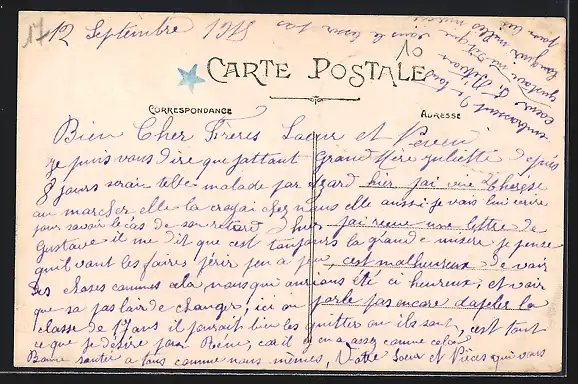 12 Septembre 1915
10
CARTE POSTALE
CORRESPONDANCE
ADRESSE
Bien Cher Frères Sœur et Neveu
je puis vous dire que jattant Grand Mère Juliette depuis
8 jours serait telle malade par azard hier jai vue Therese
au marcher elle la croyai chez nous elle aussi je vais lui ecrire
pour savoir le cas de son retard hier jai recue une lettre de
Gustave il me dit que cest toujours la grande misere je pense
quil vont les faires perir peu a peu, cest malheureux de voir
des choses commes cela, nous qui aurions été ci heureux, et voir
que sa pas lair de changer, ici on parle pas encore dapeler la
classe de 17 ans il pourait bien les quitter ou ils sont, cest tout
ce que je desire pour Rene, car il y en a assez comme cela
Bonne santer a tous comme nous mêmes, Votre Sœur et Nièces qui vous
embrassent